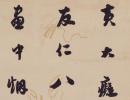 黄大癡
友仁八
畫中烟